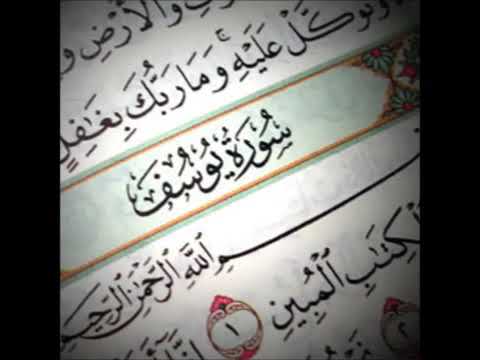 وَالْأَرْضِ
وَتَوَكَّلْ عَلَيْهِ ۚ وَمَا رَبُّكَ بِغَٰفِلٍ
سُورَةُ يُوسُفَ
اللَّهِ الرَّحْمَٰنِ الرَّحِيمِ
الْكِتَٰبِ الْمُبِينِ ١ إِنَّا
٢